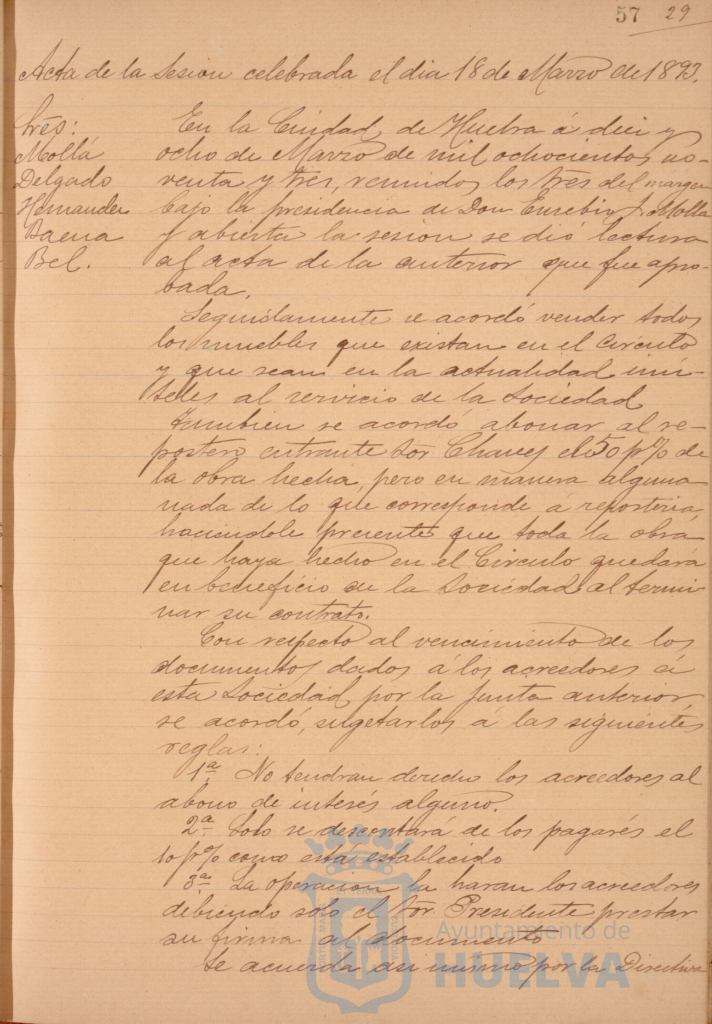 57 29
Acta de la Sesion celebrada el dia 18 de Marzo de 1893.
Sres:
Mollá
Delgado
Hernandez
Baena
Bel.
En la Ciudad de Huelva á diez y
ocho de Marzo de mil ochocientos no-
venta y tres, reunidos los Sres del margen
bajo la presidencia de Don Eusebio J. Mollá
y abierta la sesion se dió lectura
al acta de la anterior que fue apro-
bada.
Seguidamente se acordó vender todos
los muebles que existan en el Circulo
y que sean en la actualidad inú-
tiles al servicio de la Sociedad
Tambien se acordó abonar al re-
postero entrante Sor Chavez el 50 p% de
la obra hecha, pero en manera alguna
nada de lo que corresponde á reposteria,
haciendole presente que toda la obra
que haya hecho en el Circulo quedará
en beneficio de la Sociedad al termi-
nar su contrato.
Con respecto al vencimiento de los
documentos dados á los acreedores á
esta Sociedad por la Junta anterior,
se acordó, sugetarlos á las siguientes
reglas:
1ª No tendran derecho los acreedores al
abono de interés alguno.
2ª Solo se descontará de los pagarés el
10 p% como está establecido
3ª La operacion la haran los acreedores
debiendo solo el Sor Presidente prestar
su firma al documento
Se acuerda asi mismo por la Directiva
Ayuntamiento de
HUELVA